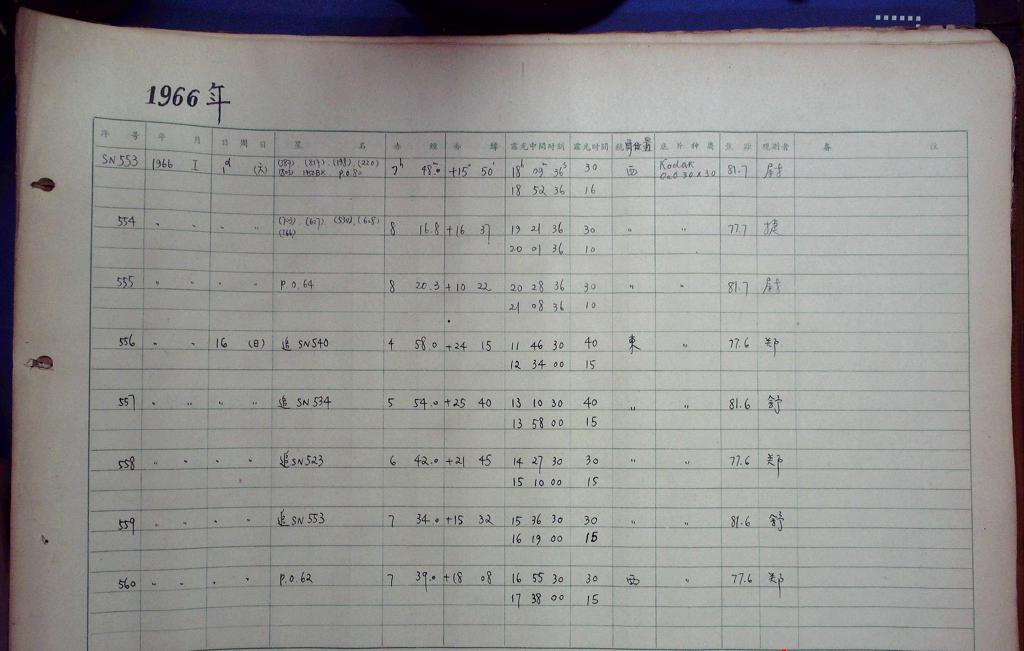 1966年
序 号 年 月 日 周日 星 名 赤 經 赤 緯 露光中間时刻 露光时間 底 片 种 类 焦 距 观測者 备 注
SN553 1966 I 1d (六) P.O.80 7h 48m.0 +15° 50' 18h 09m 36s 30 西 Kodak 81.7
18 52 36 16
554 " " " " 8 16.8 +16 37 19 21 36 30 " " 77.7 捷
20 01 36 10
555 " " " " P.O.64 8 20.3 +10 22 20 28 36 30 " " 81.7
21 08 36 10
556 " " 16 (日) 追 SN540 4 58.0 +24 15 11 46 30 40 東 " 77.6 郑
12 34 00 15
557 " " " " 追 SN534 5 54.0 +25 40 13 10 30 40 " " 81.6 舒
13 58 00 15
558 " " " " 追 SN523 6 42.0 +21 45 14 27 30 30 " " 77.6 郑
15 10 00 15
559 " " " " 追 SN553 7 34.0 +15 32 15 36 30 30 " " 81.6 舒
16 19 00 15
560 " " " " P.O.62 7 39.0 +18 08 16 55 30 30 西 " 77.6 郑
17 38 00 15